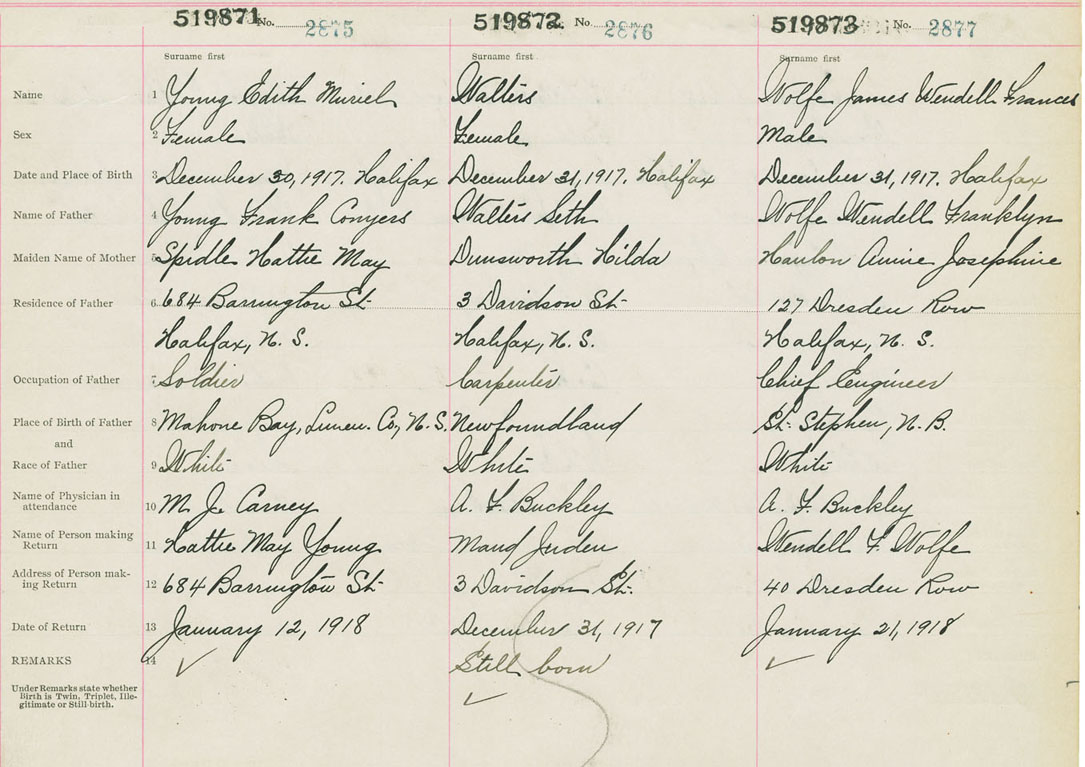 519871 No. 2875 519872 No. 2876 519873 No. 2877
Surname first Surname first Surname first
Name 1 Young Edith Muriel Walters Wolfe James Wendell Frances
Sex 2 Female Female Male
Date and Place of Birth 3 December 30, 1917. Halifax December 31, 1917. Halifax December 31, 1917. Halifax
Name of Father 4 Young Frank Conyers Walters Seth Wolfe Wendell Franklyn
Maiden Name of Mother 5 Spidle Hattie May Dunsworth Hilda Hanlon Annie Josephine
Residence of Father 6 684 Barrington St- 3 Davidson St- 127 Dresden Row
Halifax, N. S. Halifax, N. S. Halifax, N. S.
Occupation of Father 7 Soldier Carpenter Chief Engineer
Place of Birth of Father 8 Mahone Bay, Lunen. Co., N. S. Newfoundland St. Stephen, N. B.
and
Race of Father 9 White White White
Name of Physician in
attendance 10 M. J. Carney A. F. Buckley A. F. Buckley
Name of Person making
Return 11 Hattie May Young Maud Juden Wendell F. Wolfe
Address of Person mak-
ing Return 12 684 Barrington St- 3 Davidson St. 40 Dresden Row
Date of Return 13 January 12, 1918 December 31, 1917 January 21, 1918
REMARKS 14 Still born
Under Remarks state whether
Birth is Twin, Triplet, Ille-
gitimate or Still-birth.